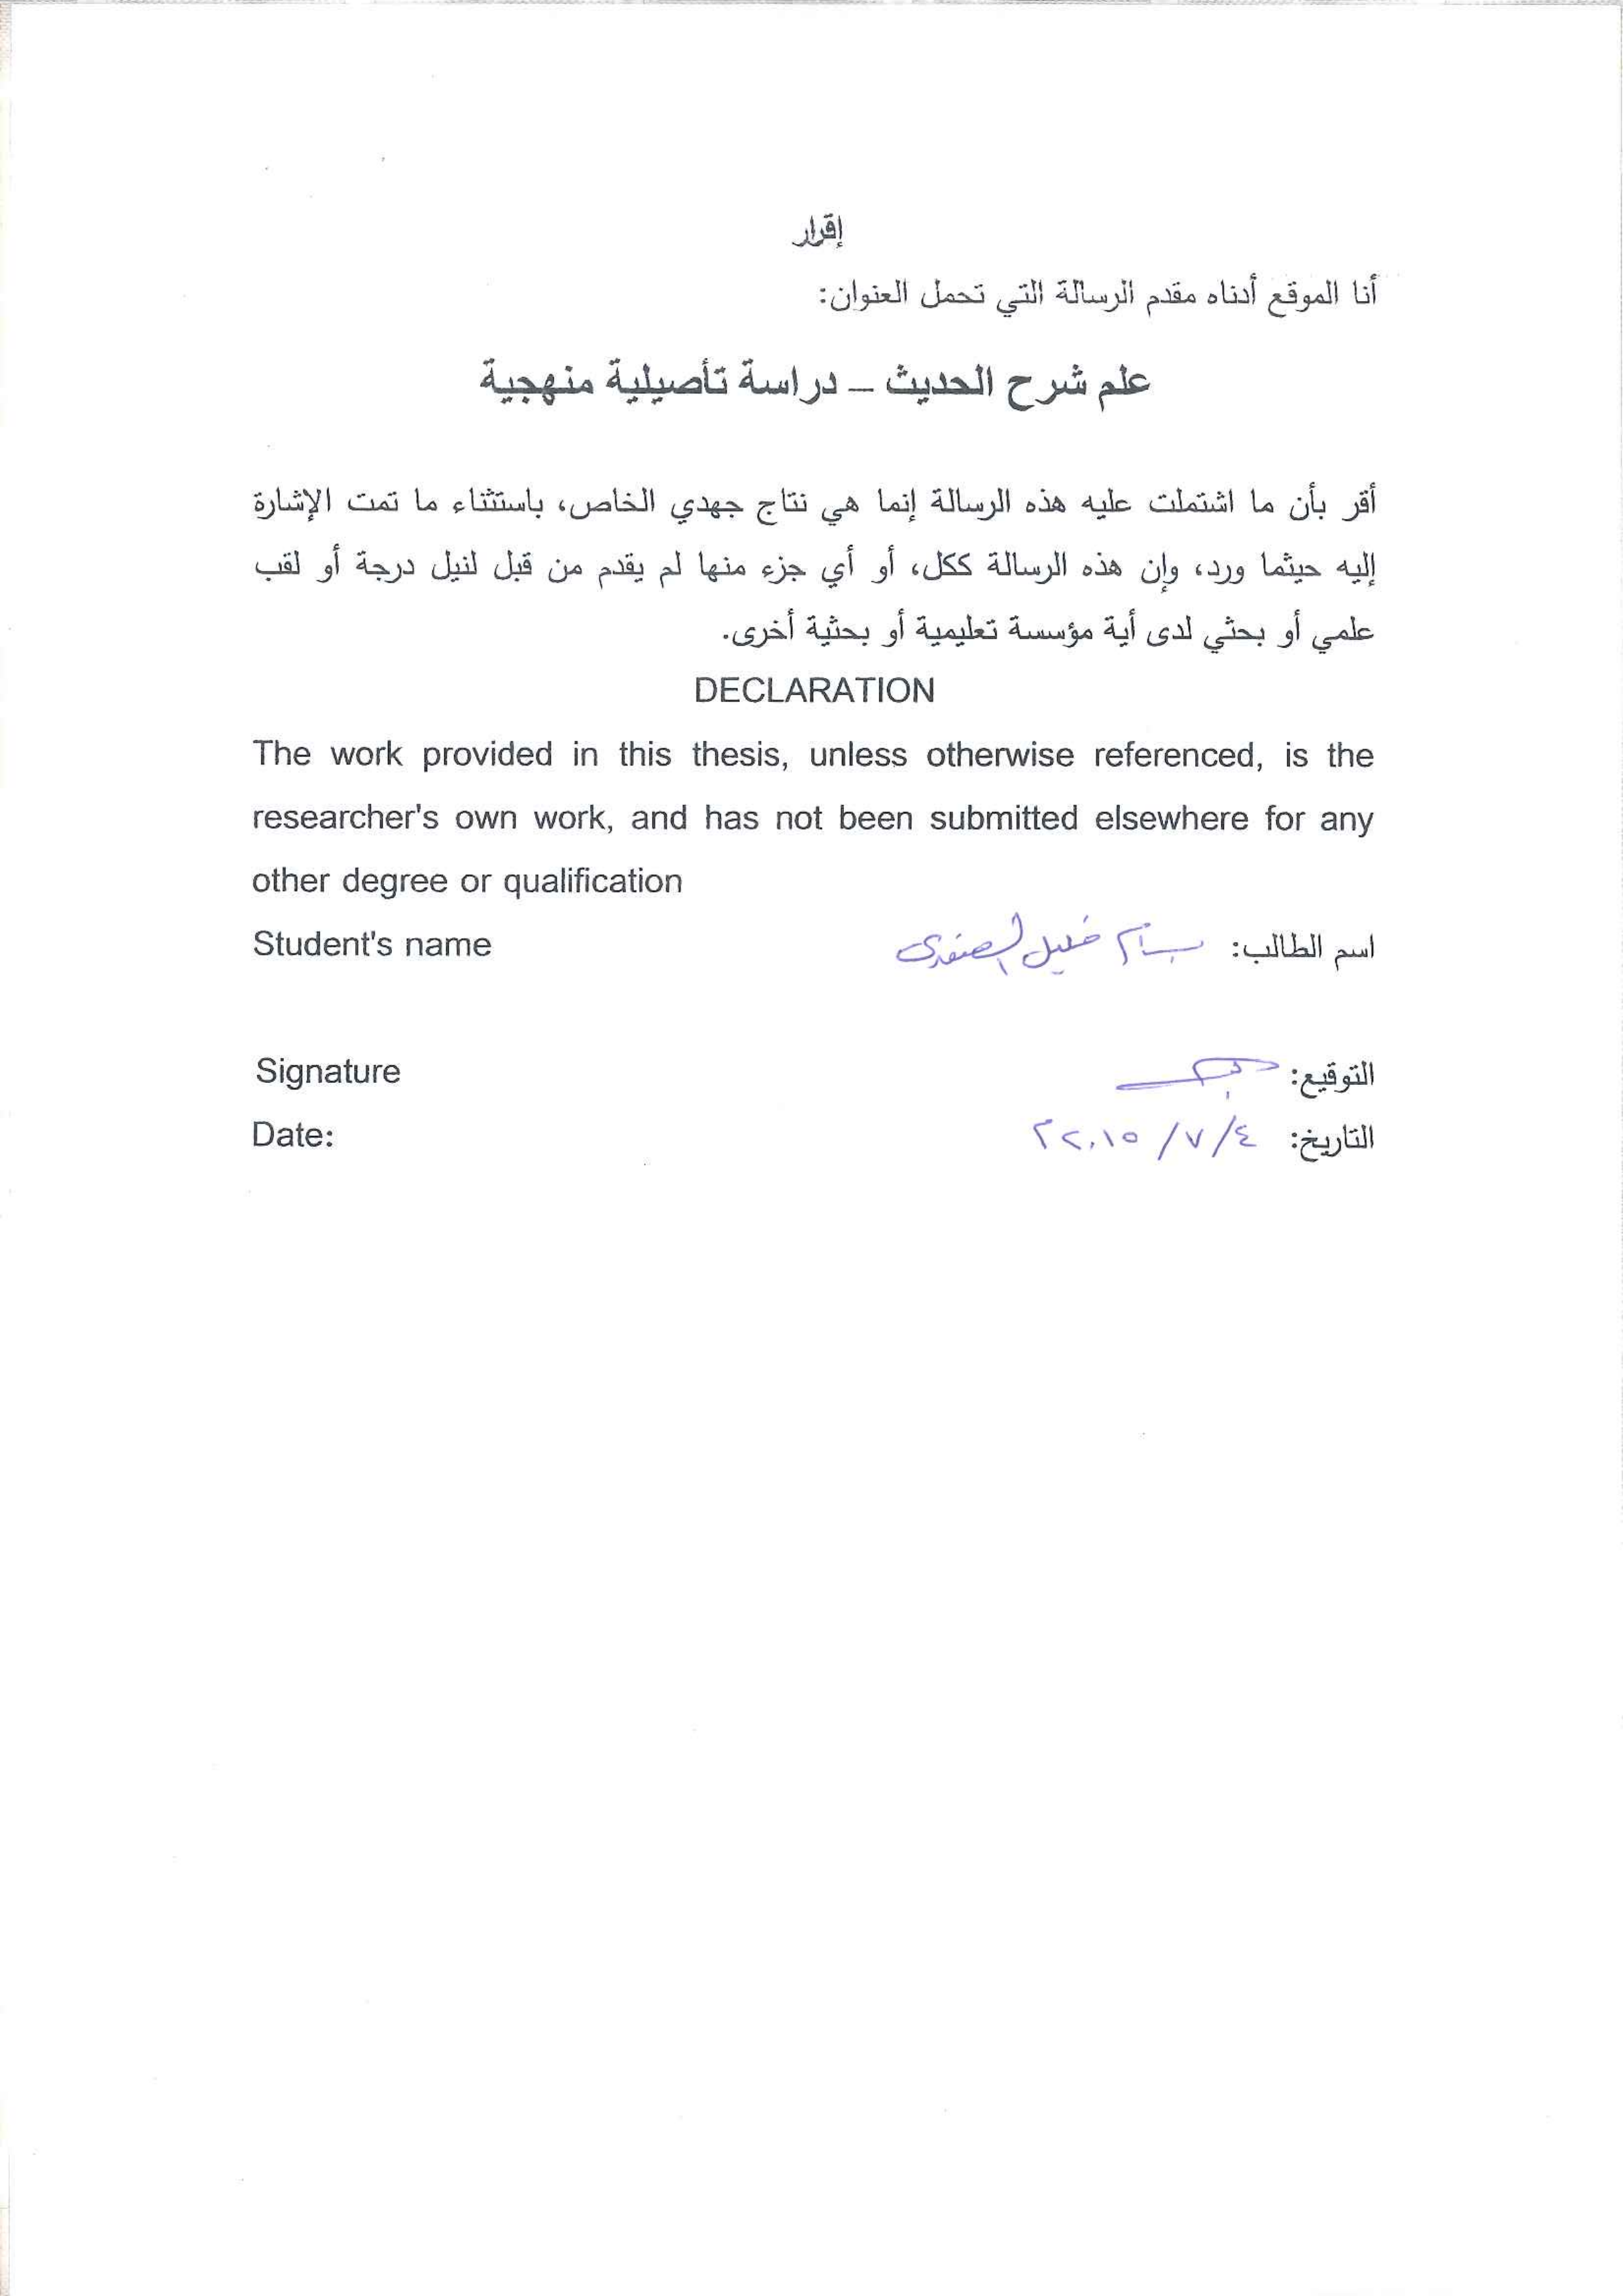 إقرار
أنا الموقع أدناه مقدم الرسالة التي تحمل العنوان:
علم شرح الحديث – دراسة تأصيلية منهجية
أقر بأن ما اشتملت عليه هذه الرسالة إنما هي نتاج جهدي الخاص، باستثناء ما تمت الإشارة
إليه حيثما ورد، وإن هذه الرسالة ككل، أو أي جزء منها لم يقدم من قبل لنيل درجة أو لقب
علمي أو بحثي لدى أية مؤسسة تعليمية أو بحثية أخرى.
DECLARATION
The work provided in this thesis, unless otherwise referenced, is the
researcher's own work, and has not been submitted elsewhere for any
other degree or qualification
Student's name
اسم الطالب: بسام خليل الصفدي
Signature
التوقيع:
Date:
التاريخ: ٤/٧/٢٠١٥